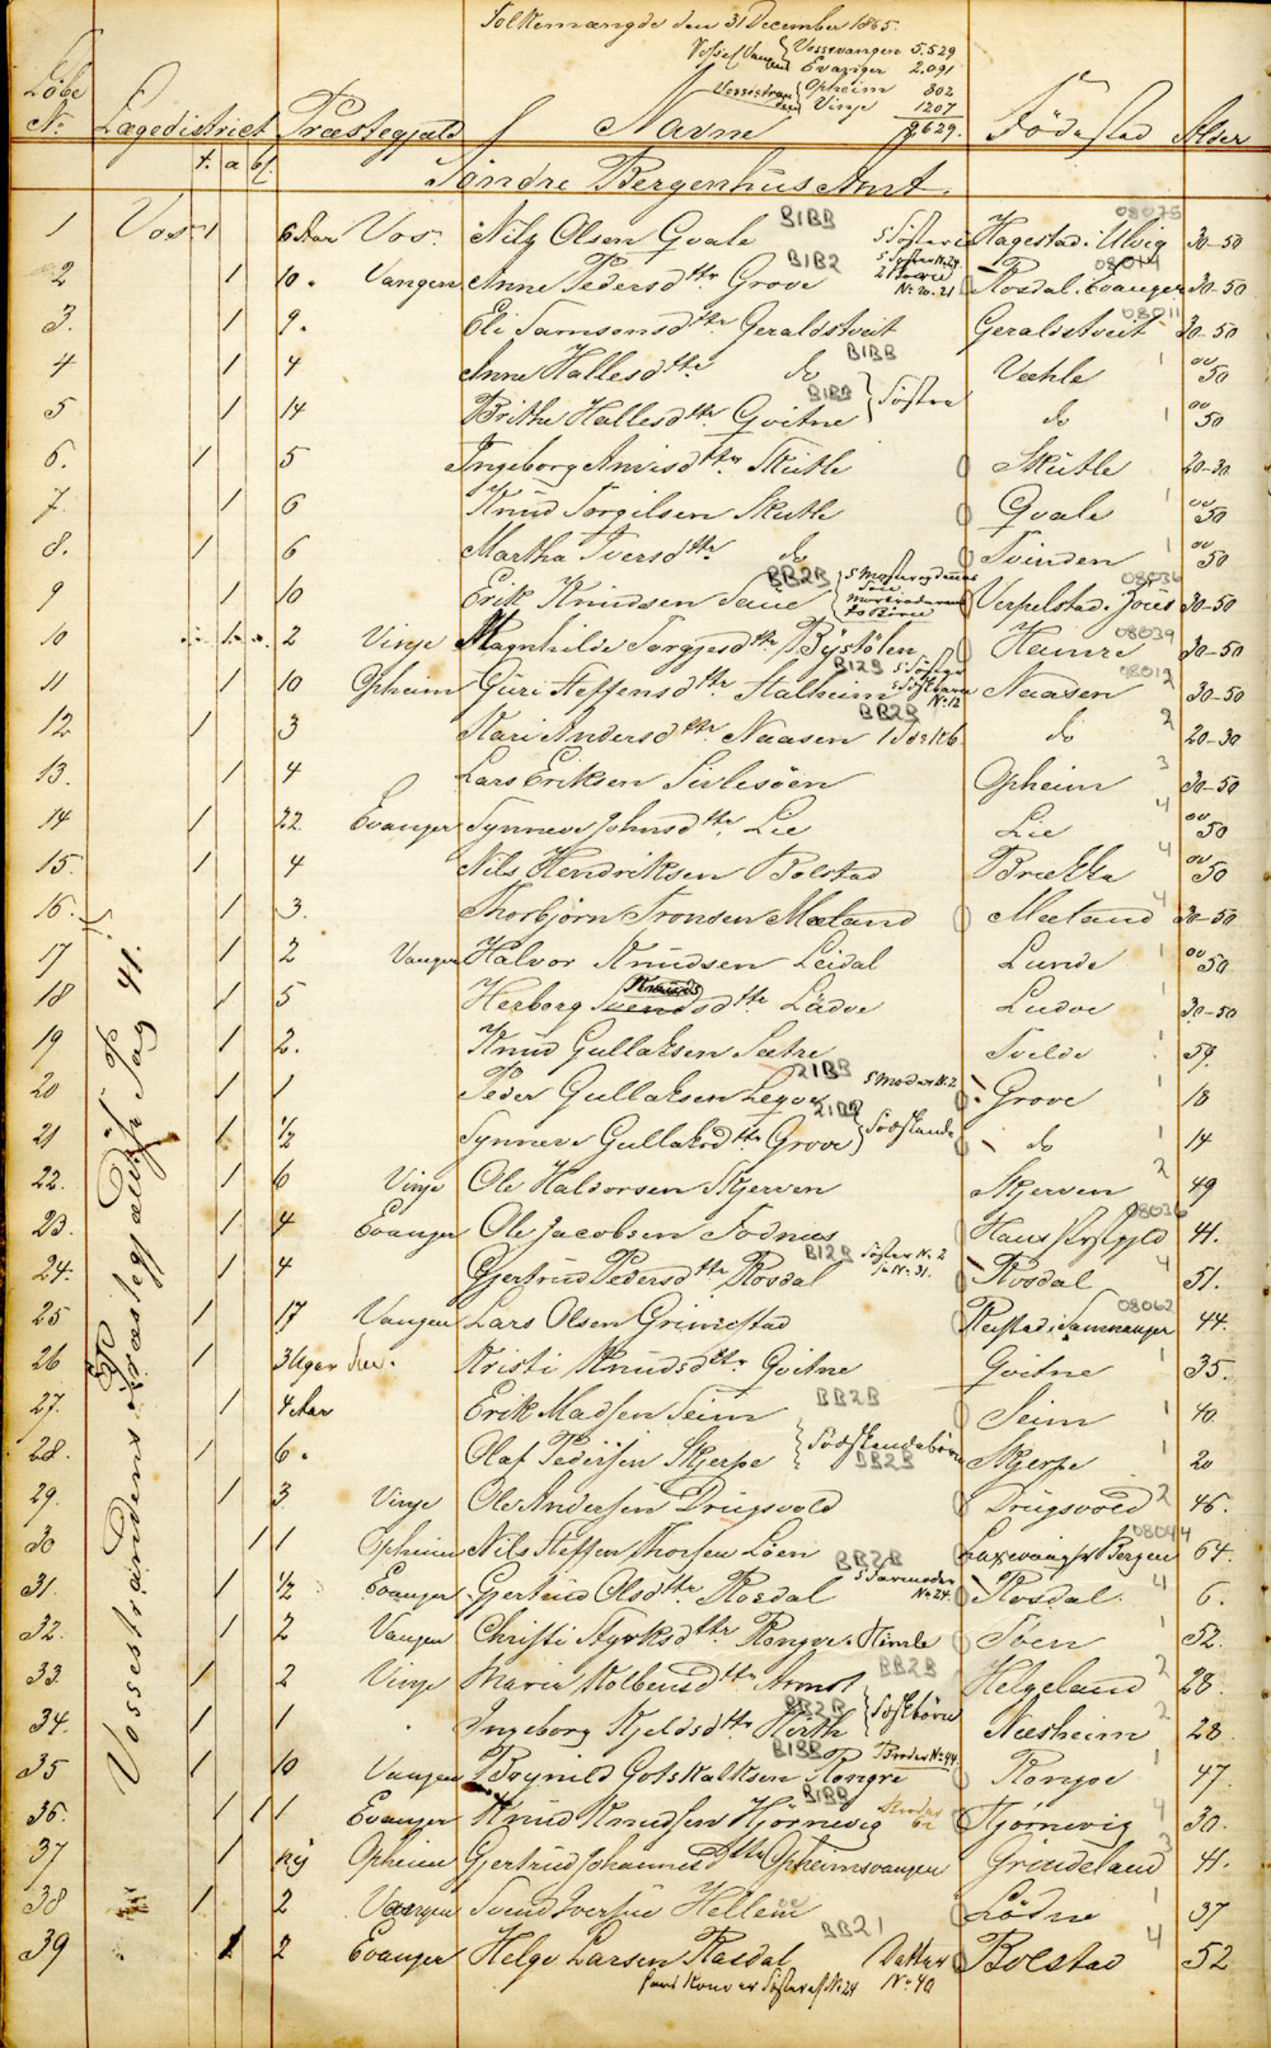 Folkemængde den 31 December 1865.
Vossevangen 5.529
Evanger 2.091
Opheim 802
Vinje 1207
9629.
Löbe No. Lægedistrict Præstegjæld Navne Födested Alder
t. a bl.
Söndre Bergenhus Amt.
1 Vos. 1 6 Aar Vos. Nils Olsen Qvale B1BB 5 Söstre Hagestad i Ulvig 08075 30-50
2 1 10 Vangen Anne Pedersdtr Grove B1B2 S Söster N. 24. No 20.21 Rosdal. Evanger 30-50
3. 1 9. Eli Samsonsdtr Geraldstveit Geraldstveit 08011 30-50
4 1 4 Anne Hallesdtr do B1BB Væhle 1 ov 50
5 1 14 Brithe Hallesdtr Qvitne B1BB Söstre do 1 ov 50
6. 1 5 Ingeborg Skutle Skutle 20-30
7. 1 6 Knud Torgilsen Skutle Qvale 1 ov 50
8. 1 6 Martha Iversdtr do Tvinden 1 ov 50
9 1 10 Erik Knudsen Saue BB2B 08036 30-50
10 2 Vinje Magnhilde Torgjesdtr Bystölen Hamre 08039 30-50
11 1 10 Opheim Guri Steffensdtr Stalheim B12B No 12 Naasen 08012 30-50
12 1 3 Kari Andersdtr Naasen BB2B do 2 20-30
13. 1 4 Lars Eriksen Sivlesöen Opheim 3 30-50
14 1 22 Evanger Synneve Johnsdtr Lie Lie 4 ov 50
15. 1 4 Nils Hendriksen Bolstad Brække 4 ov 50
16. 1 3. Thorbjörn Tronsen Mæland Mæland 4 30-50
17 1 2 Vangen Halvor Knudsen Leidal Lunde 1 ov 50
18 1 5 Knuds Herborg Svendsdtr Lödve Ludve 1 30-50
19 1 2. Knud Gullaksen Sætre Tvilde 1 59.
20 1 1 Peder Gullaksen 21BB S Moder N. 2 Grove 1 18
21 1 1/2 Synneve Gullaksdtr Grove 21BB Södskende do 1 14
22. 1 6 Vinje Ole Halvorsen Skjerven Skjerven 2 49
23. 1 4 Evanger Ole Jacobsen Fodnes 08036 41.
24. 1 4 Gjertrud Pedersdtr Rosdal B12B Söster N. 2 No. 31. Rosdal 4 51.
25 1 17 Vangen Lars Olsen Grimestad Samnanger 08062 44.
26 1 3 Uger Kristi Knudsdtr Qvitne Qvitne 1 35.
27. 1 4 Aar Erik Madsen Seim BB2B Seim 1 40
28. 1 6. Olaf Pedersen Skjerpe Södskendebörn BB2B Skjerpe 1 20
29. 1 3 Vinje Ole Andersen Drugsvold Drugsvold 2 46.
30 1 1 Opheim Nils Steffen Thorsen Löen Laxevaag Bergen 08044 64.
31. 1 1/2 Evanger Gjertrud Olsdtr Rosdal BB2B S Farmoder No 24. Rosdal. 4 6.
32. 1 2 Vangen Christi Styrksdtr Rongve. Himle Töen 1 52.
33. 1 2 Vinje Maria Kolbensdtr BB2B Helgeland 2 28.
34. 1 1 Ingeborg Kjeldsdtr Hirth BB2B Söskbörn Næsheim 2 28
35 1 10 Vangen Brynild Gotskalksen Rongve B1BB Broder No 44 Rongve 1 47
36. 1 1 1 Evanger Knud Knudsen Hjörnevig B1BB Hjörnevig 4 30.
37 1 ny Opheim Gjertrud Johannesdtr Opheimsvangen Grindeland 3 41.
38 1 2 Vangen Svend Iversen Hellene Lödve 1 37
39 1 2 Evanger Helge Larsen Rasdal BB21 Datter No. 40 Bolstad 4 52
hans Kone er Söster af No 24
Vossestrandens Præstegjæld se Pag 41.